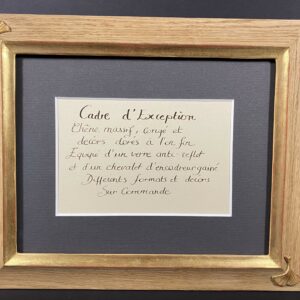 Cadre d'Exception
Chêne massif, cérusé et
décors dorés à l'or fin
Équipé d'un verre anti reflet
et d'un chevalet d'encadreur gainé
Différents formats et décors
Sur Commande